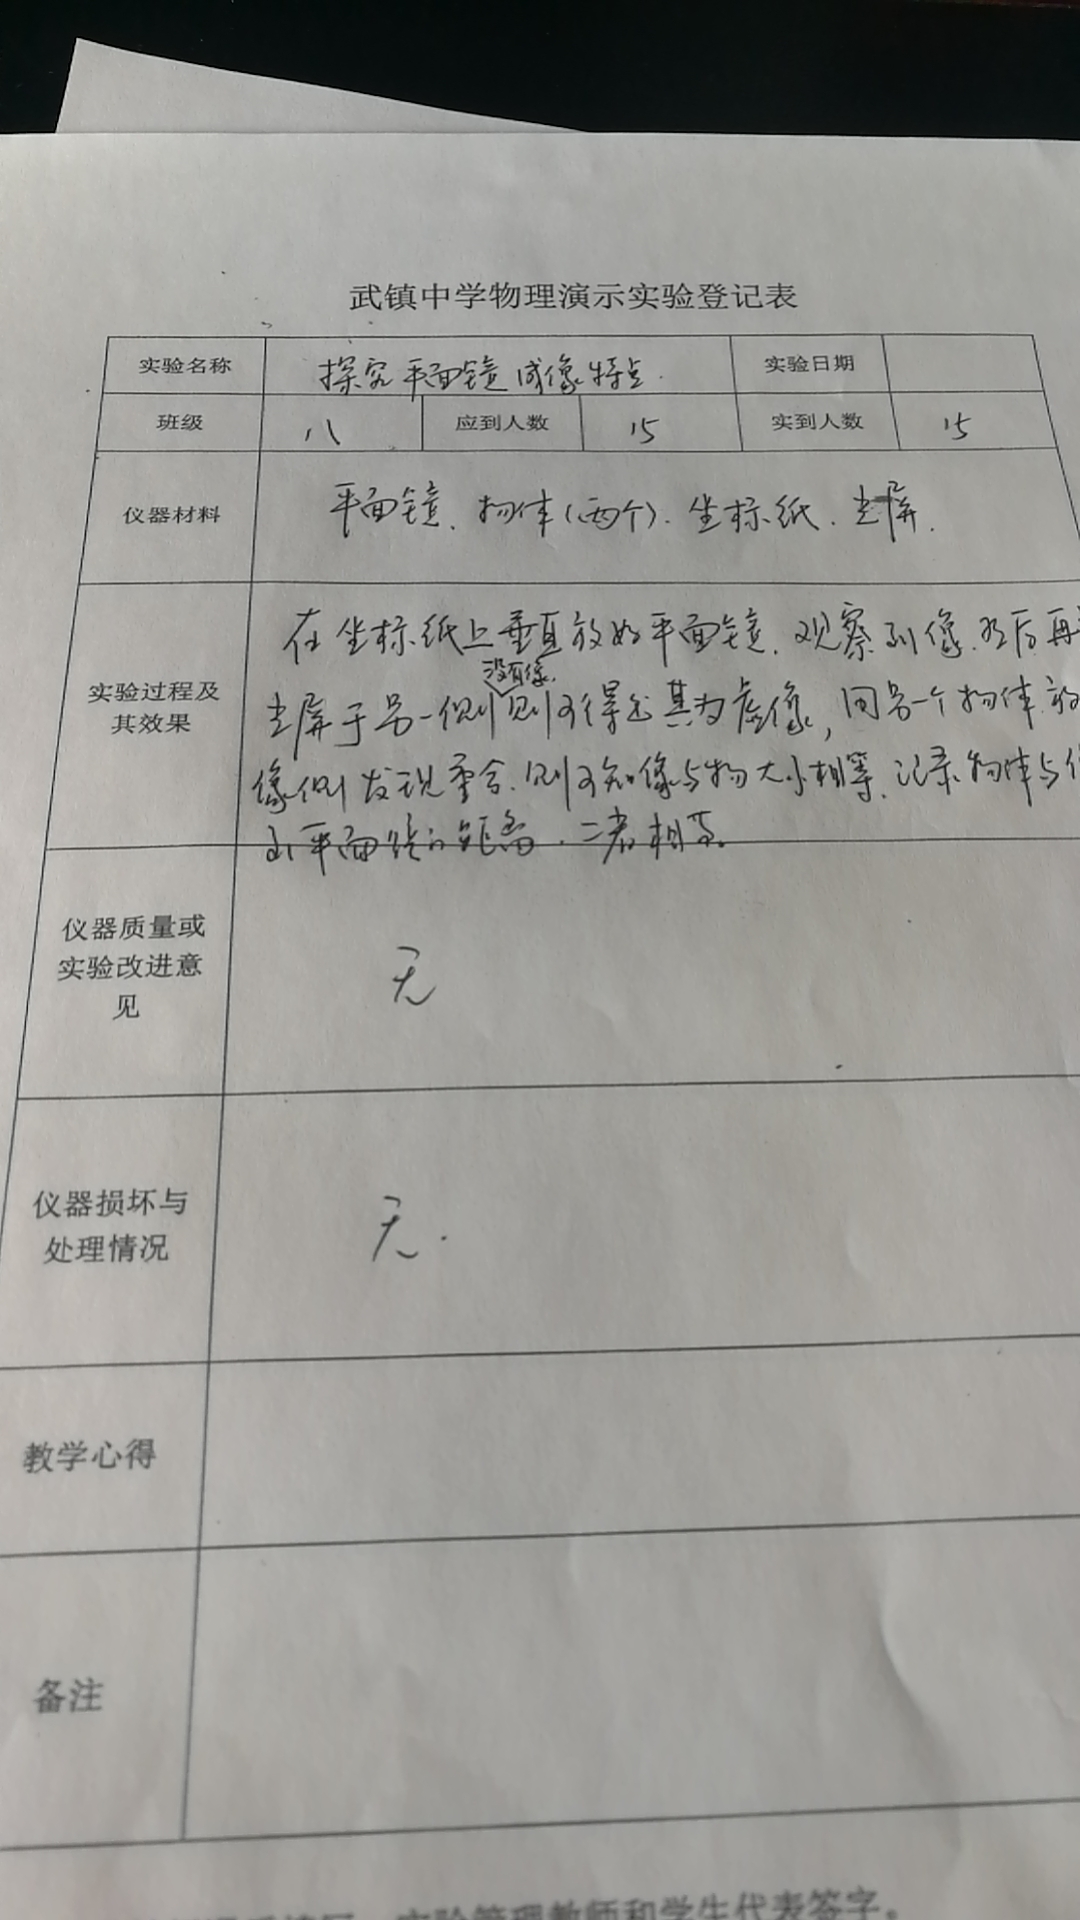 武镇中学物理演示实验登记表
实验名称 探究平面镜成像特点. 实验日期
班级 八 应到人数 15 实到人数 15
仪器材料 平面镜、物体(两个)、坐标纸、光屏.
在坐标纸上垂直放好平面镜.观察到像.然后再
没有像.
实验过程及 光屏于另一侧则可得出其为虚像,同另一个物体放
其效果 像侧发现重合.则可知像与物大小相等.记录物体与
到平面镜的距离.二者相等。
仪器质量或
实验改进意
见
无
仪器损坏与
处理情况
无.
教学心得
备注
实验管理教师和学生代表签字。